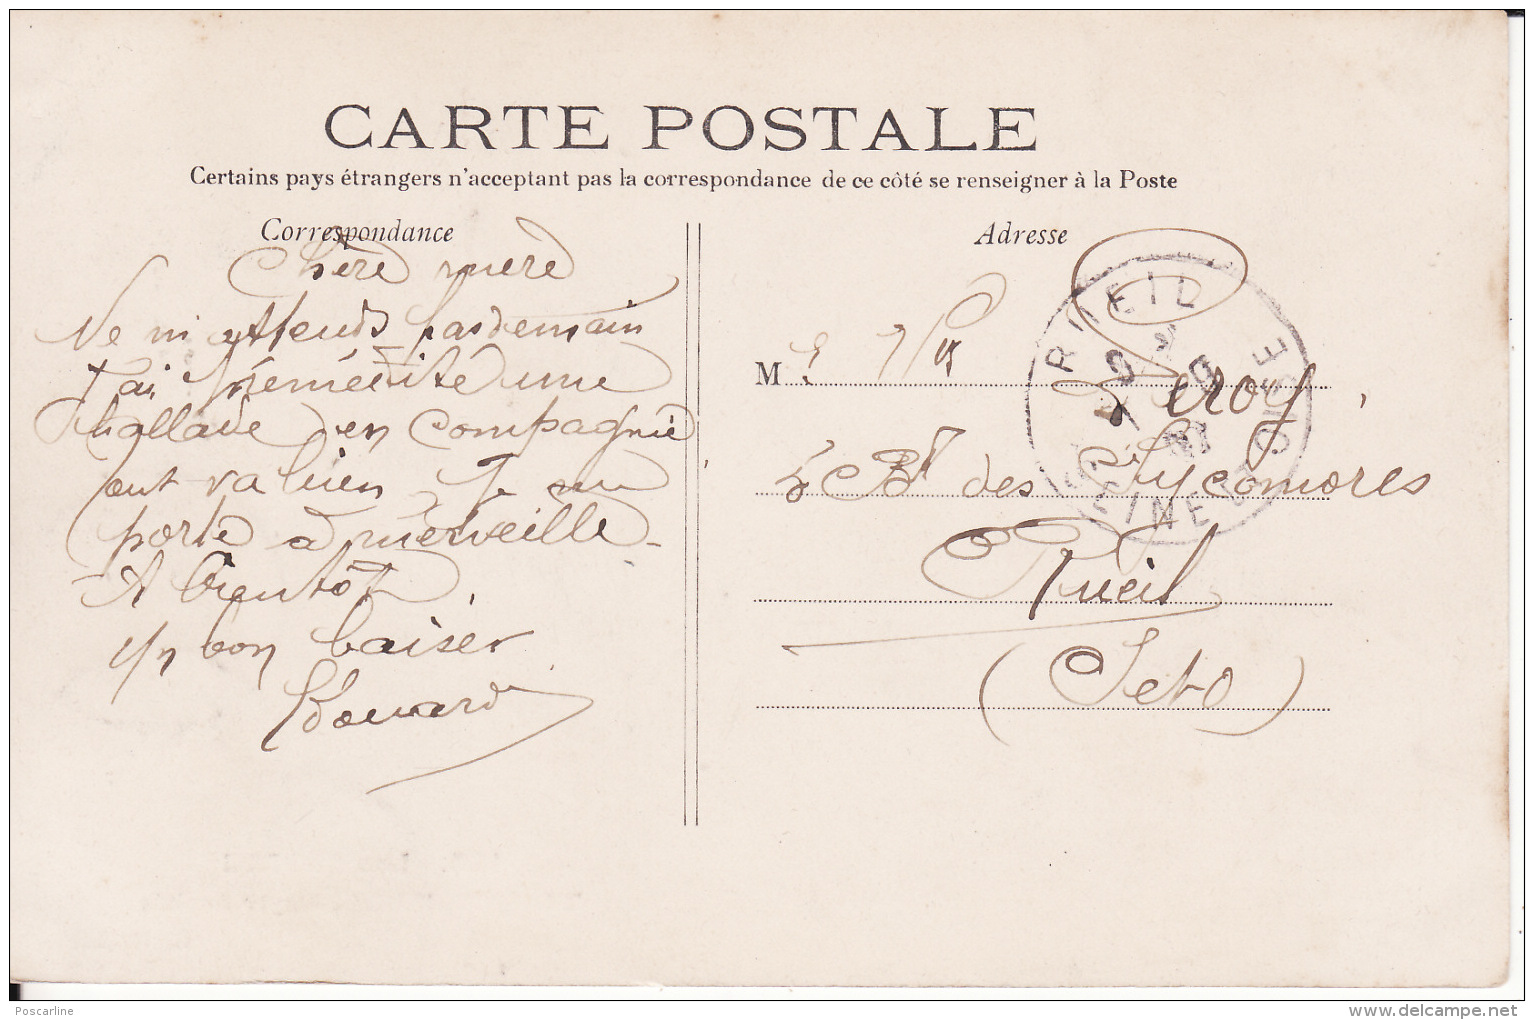 CARTE POSTALE
Certains pays étrangers n'acceptent pas la correspondance de ce côté se renseigner à la Poste
Correspondance
Chère mère
Ne m'attends pas demain
J'ai prémédité une
ballade en compagnie
out va bien Je me
porte à merveille
A bientôt
Un bon baiser
Edouard
Adresse
M Leroy,
5 Bd des Sycomores
Rueil
(Set O)
RUEIL
SEINE ET OISE
Poscarline
http://www.delcampe.net